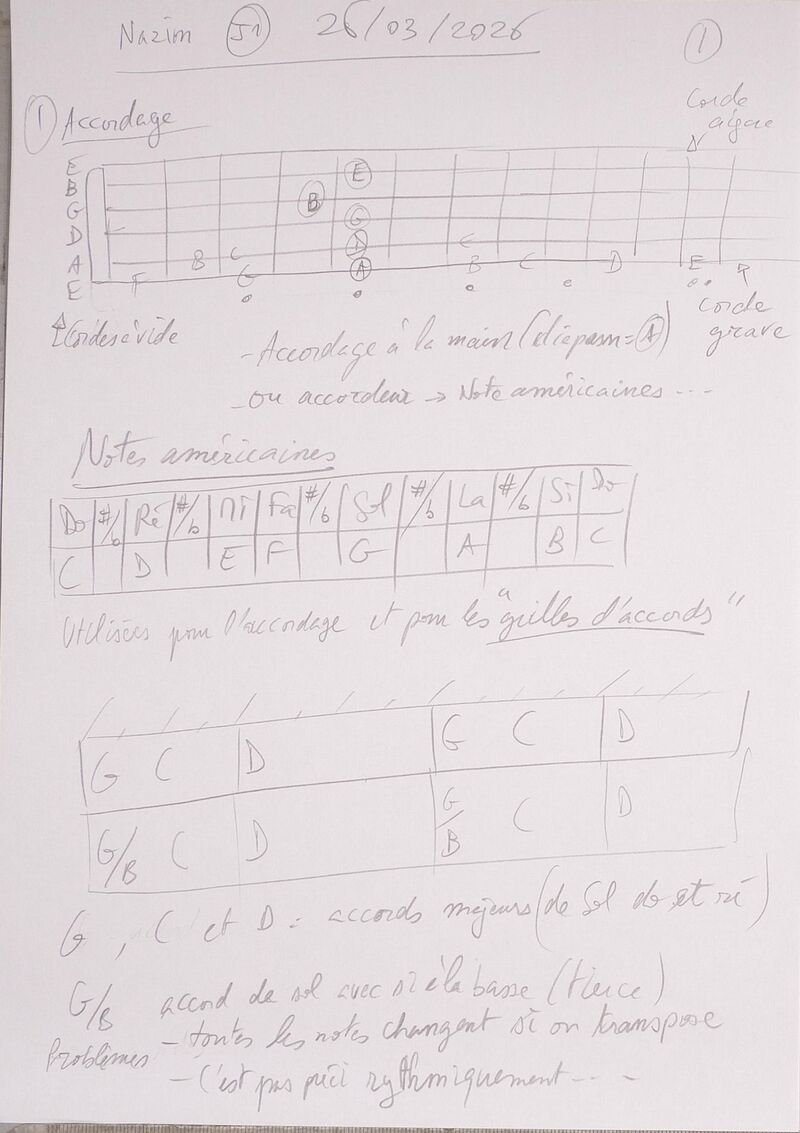 Nazim J1 26/03/2026 1
1 Accordage
Corde
aigue
E E
B B
G G
D D C
A B C A B C D E
E F G
Cordes à vide
Corde
grave
- Accordage à la main (diapason = A)
- ou accordeur → Note américaines ...
Notes américaines
Do #/b Ré #/b Mi Fa #/b Sol #/b La #/b Si Do
C D E F G A B C
Utilisées pour l'accordage et pour les "grilles d'accords"
G C D G C D
G/B C D G/B C D
G, C et D = accords majeurs (de Sol do et ré)
G/B accord de sol avec si à la basse (tierce)
Problèmes - toutes les notes changent si on transpose
- C'est pas préci rythmiquement ...